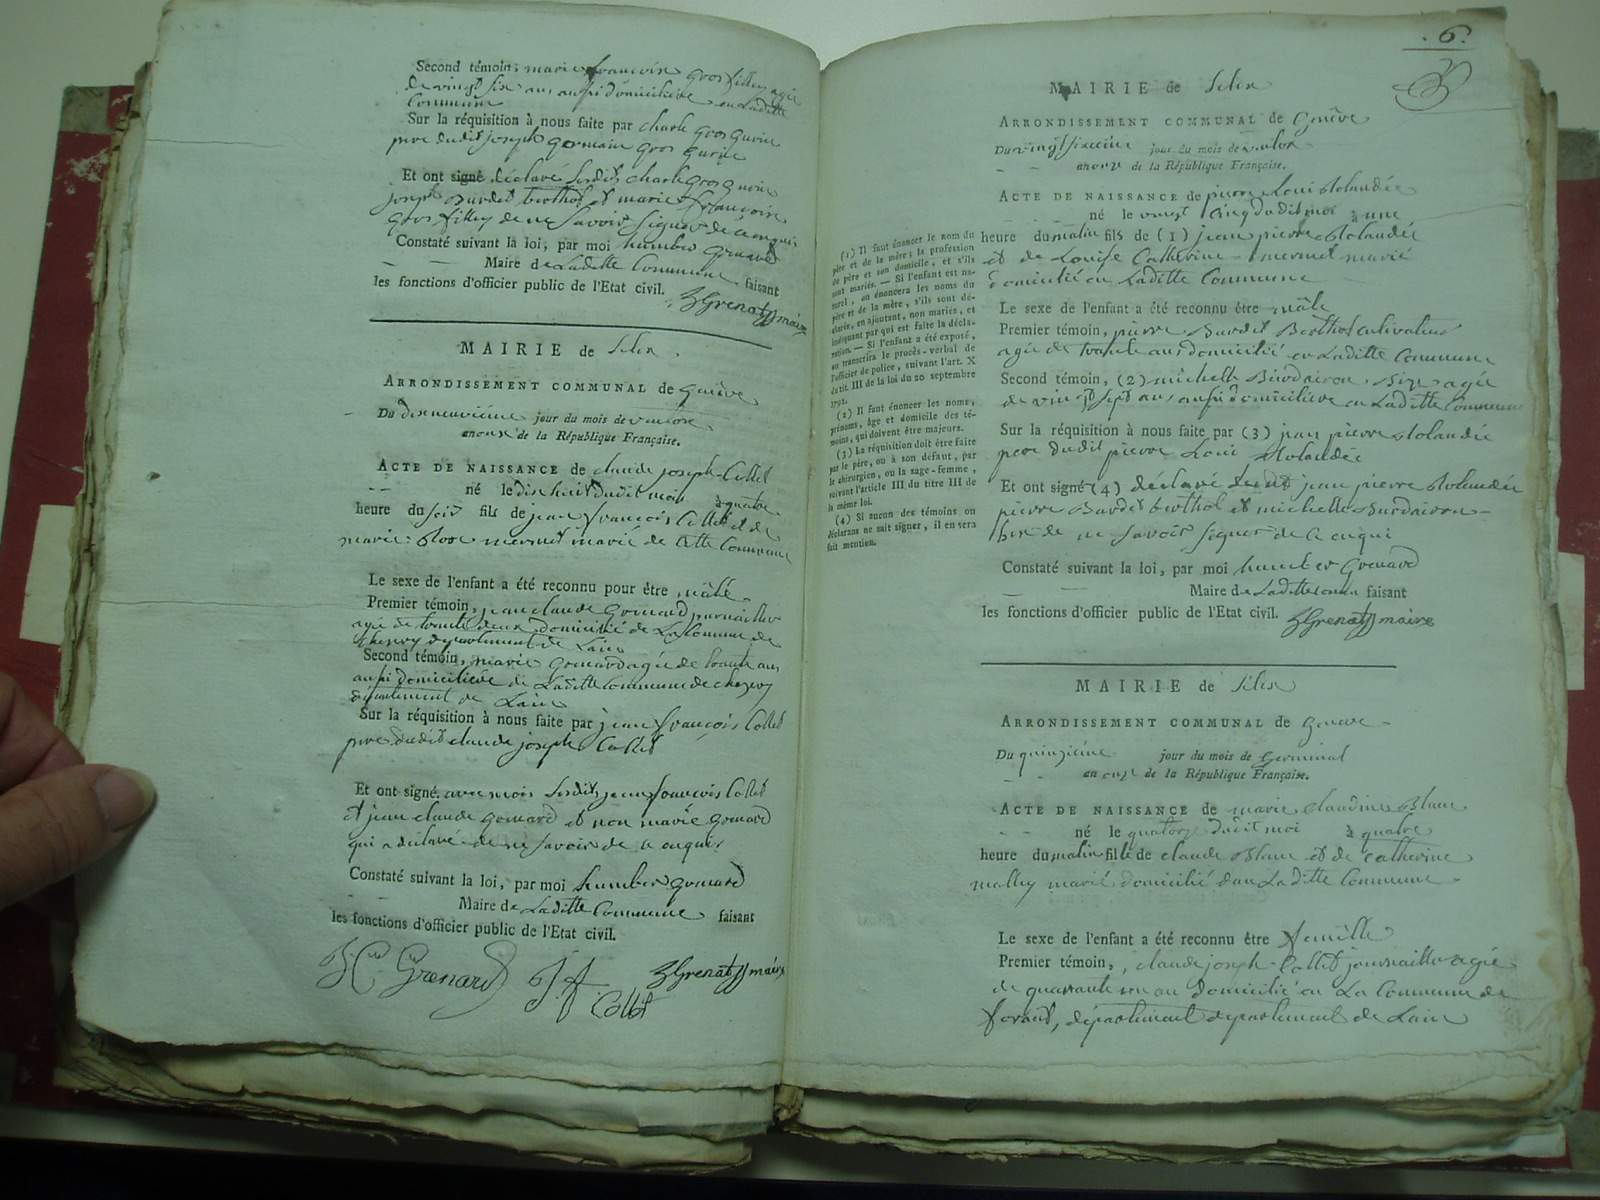 Second témoin, marie francoise gros filley agée
de vingt six ans aussi domiciliée en Laditte
Commune
Sur la réquisition à nous faite par charle gros gurin
pere dudit joseph germain gros gurin
Et ont signé déclavé Lesdits charle gros gurin
joseph burdet berthod et marie francoise
gros filley de ne Savoir Signer de ce enquis
Constaté suivant la loi, par moi humber grenard
Maire de Laditte Commune faisant
les fonctions d'officier public de l'Etat civil.
hGrenard maire
MAIRIE de Lelex
ARRONDISSEMENT COMMUNAL de Genève
Du disneuvieme jour du mois de ventose
an onze de la République Française.
ACTE DE NAISSANCE de claude joseph Collet
né le dix huit dudit mois à quatre
heure du soir fils de jean françois Collet et de
marie: Rose mermet marié de cette Commune
Le sexe de l'enfant a été reconnu pour être mâle
Premier témoin, jean claude grenard journaillier
agé de trante deux domicilié de La commune de
chezery département de Lain
Second témoin, marie grenard agée de trante ans
aussi domiciliée de Laditte Commune de chezery
département de Lain
Sur la réquisition à nous faite par jean françois Collet
pere dudit claude joseph Collet
Et ont signé avec mois Lesdits jean francois Collet
et jean claude grenard et non marie grenard
qui a déclavé de ne Savoir de ce enquis
Constaté suivant la loi, par moi humber grenard
Maire de Laditte Commune faisant
les fonctions d'officier public de l'Etat civil.
Grenard J.f. Collet hGrenard maire
.6.
MAIRIE de Lelex
ARRONDISSEMENT COMMUNAL de Genève
Du vingt sixieme jour du mois de ventose
an onze de la République Française.
ACTE DE NAISSANCE de pierre Loui Rolandée
né le vingt cinq dudit moi à une
heure du matin fils de (1) jean pierre Rolandée
et de Louise Catherine mermet marié
domicilié en Laditte Commune
Le sexe de l'enfant a été reconnu être mâle
Premier témoin, pierre Burdet Berthod cultivateur
agée de trante ans domicilié en Laditte Commune
Second témoin, (2) michelle Burdairon Bize agée
de vingt sept ans aussi domiciliée en Laditte Commune
Sur la réquisition à nous faite par (3) jean pierre Rolandée
pere dudit pierre Loui Rolandée
Et ont signé (4) déclavé Lesdit jean pierre Rolandée
pierre Burdet berthod et michelle Burdairon
bize de ne Savoir Signer de ce enqui
Constaté suivant la loi, par moi humber Grenard
Maire de Laditte commune faisant
les fonctions d'officier public de l'Etat civil. hGrenard maire
(1) Il faut énoncer le nom du
père et de la mère; la profession
du père et son domicile, et s'ils
sont mariés. — Si l'enfant est na-
turel, on énoncera les noms du
père et de la mère, s'ils sont dé-
clarés, en ajoutant, non mariés, et
indiquant par qui est faite la décla-
ration. — Si l'enfant a été exposé,
on transcrira le procès-verbal de
l'officier de police, suivant l'art. X
du tit. III de la loi du 20 septembre
1792.
(2) Il faut énoncer les noms,
prénoms, âge et domicile des té-
moins, qui doivent être majeurs.
(3) La réquisition doit être faite
par le père, ou à son défaut, par
le chirurgien, ou la sage-femme,
suivant l'article III du titre III de
la même loi.
(4) Si aucun des témoins ou
déclarans ne sait signer, il en sera
fait mention.
MAIRIE de Lelex
ARRONDISSEMENT COMMUNAL de Geneve
Du quinzieme jour du mois de Germinal
an onze de la République Française.
ACTE DE NAISSANCE de marie claudine Blanc
né le quatorze dudit moi à quatre
heure du matin fille de claude Blanc et de catherine
malley marié domicilié dans Laditte Commune
Le sexe de l'enfant a été reconnu être femille
Premier témoin, claude joseph Collet journaillier agée
de quarante un an domicilié en La Commune de
forens, département departement de Lain